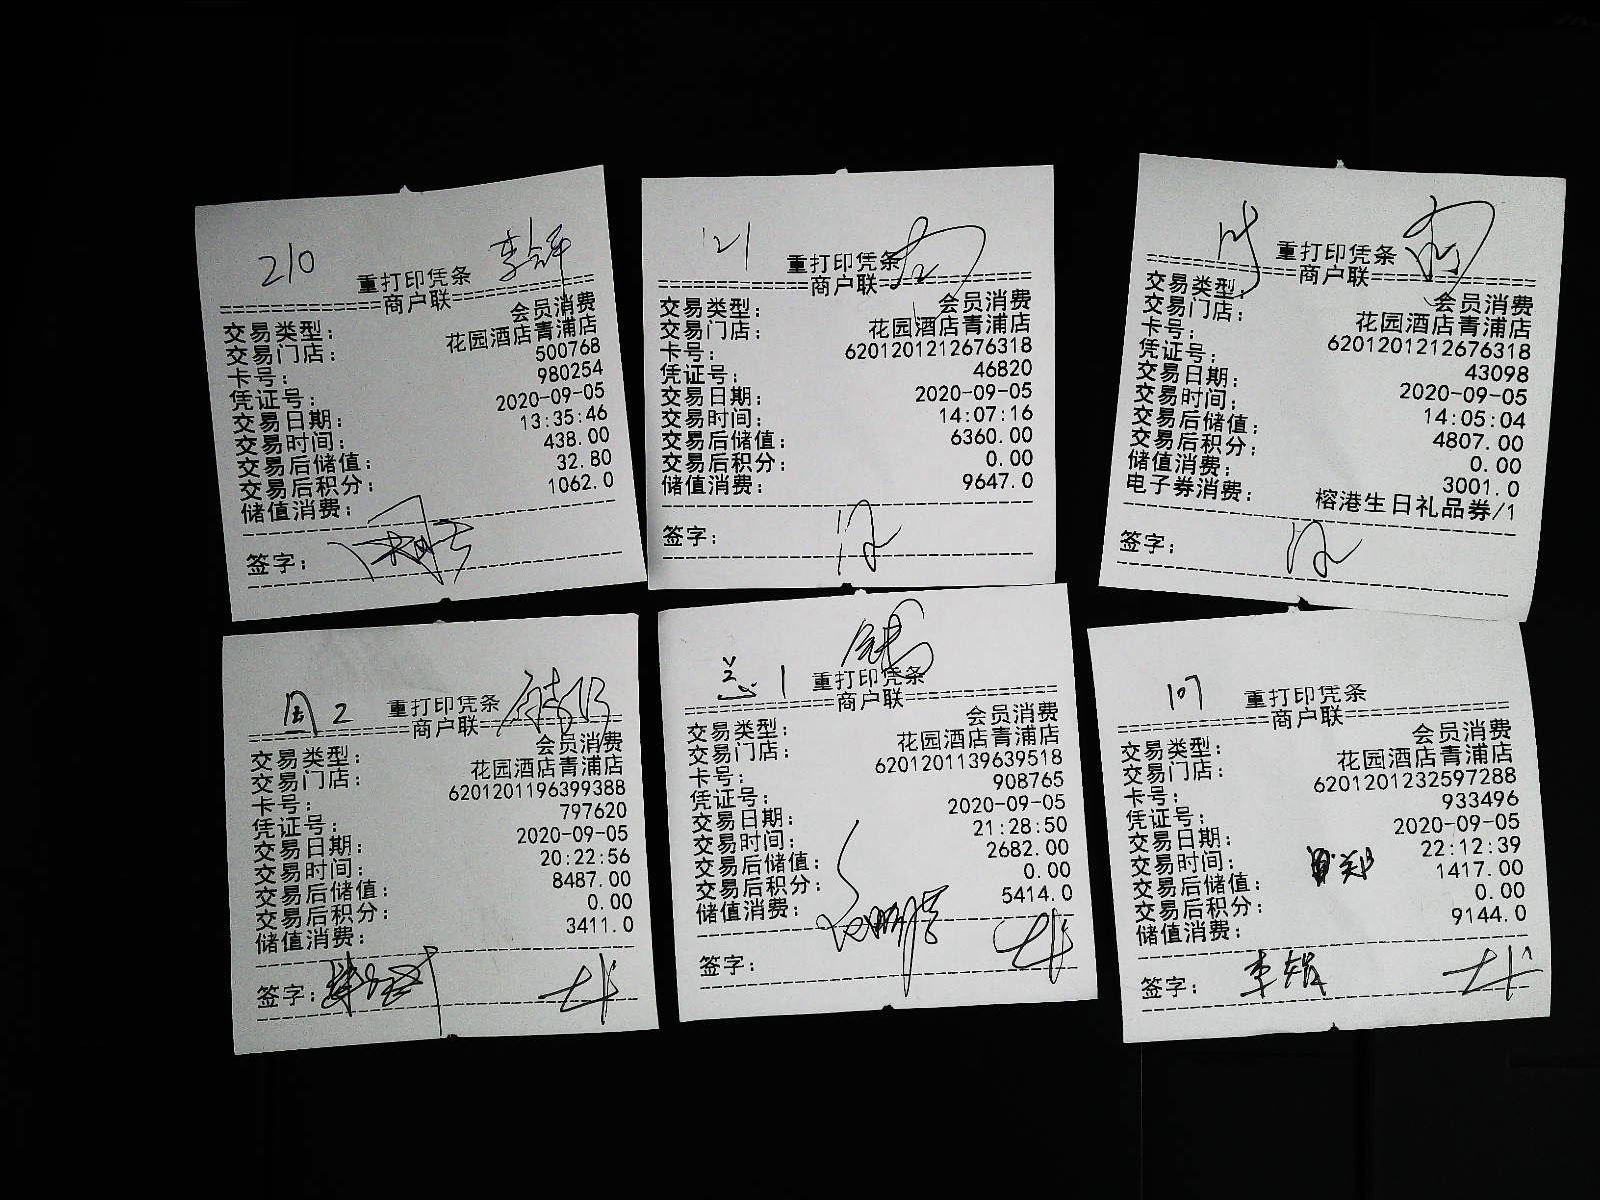 210
重打印凭条
商户联
交易类型：会员消费
交易门店：花园酒店青浦店
卡号：500768
凭证号：980254
交易日期：2020-09-05
交易时间：13:35:46
交易后储值：438.00
交易后积分：32.80
储值消费：1062.0
签字：
121
重打印凭条
商户联
交易类型：会员消费
交易门店：花园酒店青浦店
卡号：6201201212676318
凭证号：46820
交易日期：2020-09-05
交易时间：14:07:16
交易后储值：6360.00
交易后积分：0.00
储值消费：9647.0
签字：
重打印凭条
商户联
交易类型：会员消费
交易门店：花园酒店青浦店
卡号：6201201212676318
凭证号：43098
交易日期：2020-09-05
交易时间：14:05:04
交易后储值：4807.00
交易后积分：0.00
储值消费：3001.0
电子券消费：榕港生日礼品券/1
签字：
2
重打印凭条
商户联
交易类型：会员消费
交易门店：花园酒店青浦店
卡号：6201201196399388
凭证号：797620
交易日期：2020-09-05
交易时间：20:22:56
交易后储值：8487.00
交易后积分：0.00
储值消费：3411.0
签字：
1
重打印凭条
商户联
交易类型：会员消费
交易门店：花园酒店青浦店
卡号：6201201139639518
凭证号：908765
交易日期：2020-09-05
交易时间：21:28:50
交易后储值：2682.00
交易后积分：0.00
储值消费：5414.0
签字：
107
重打印凭条
商户联
交易类型：会员消费
交易门店：花园酒店青浦店
卡号：6201201232597288
凭证号：933496
交易日期：2020-09-05
交易时间：22:12:39
交易后储值：1417.00
交易后积分：0.00
储值消费：9144.0
签字：